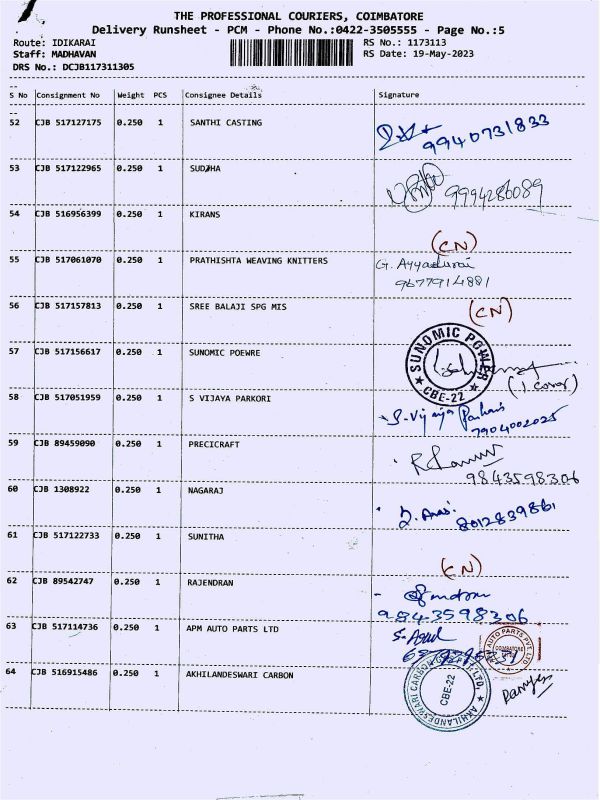 THE PROFESSIONAL COURIERS, COIMBATORE
Delivery Runsheet - PCM - Phone No.:0422-3505555 - Page No.:5
Route: IDIKARAI RS No.: 1173113
Staff: MADHAVAN RS Date: 19-May-2023
DRS No.: DCJB117311305
S No Consignment No Weight PCS Consignee Details Signature
52 CJB 517127175 0.250 1 SANTHI CASTING
9940731833
53 CJB 517122965 0.250 1 SUDHA
9994286089
54 CJB 516956399 0.250 1 KIRANS
(CN)
55 CJB 517061070 0.250 1 PRATHISHTA WEAVING KNITTERS G. Ayyadurai
9677914881
56 CJB 517157813 0.250 1 SREE BALAJI SPG MIS (CN)
57 CJB 517156617 0.250 1 SUNOMIC POEWRE SUNOMIC POWER
CBE-22
(1 cover)
58 CJB 517051959 0.250 1 S VIJAYA PARKORI S. Vijaya
7904002025
59 CJB 89459090 0.250 1 PRECICRAFT
9843598306
60 CJB 1308922 0.250 1 NAGARAJ
8012839861
61 CJB 517122733 0.250 1 SUNITHA
(CN)
62 CJB 89542747 0.250 1 RAJENDRAN
9843598306
63 CJB 517114736 0.250 1 APM AUTO PARTS LTD
AUTO PARTS PVT. LTD
COIMBATORE
64 CJB 516915486 0.250 1 AKHILANDESWARI CARBON
AKHILANDESWARI CARBON
CBE-22